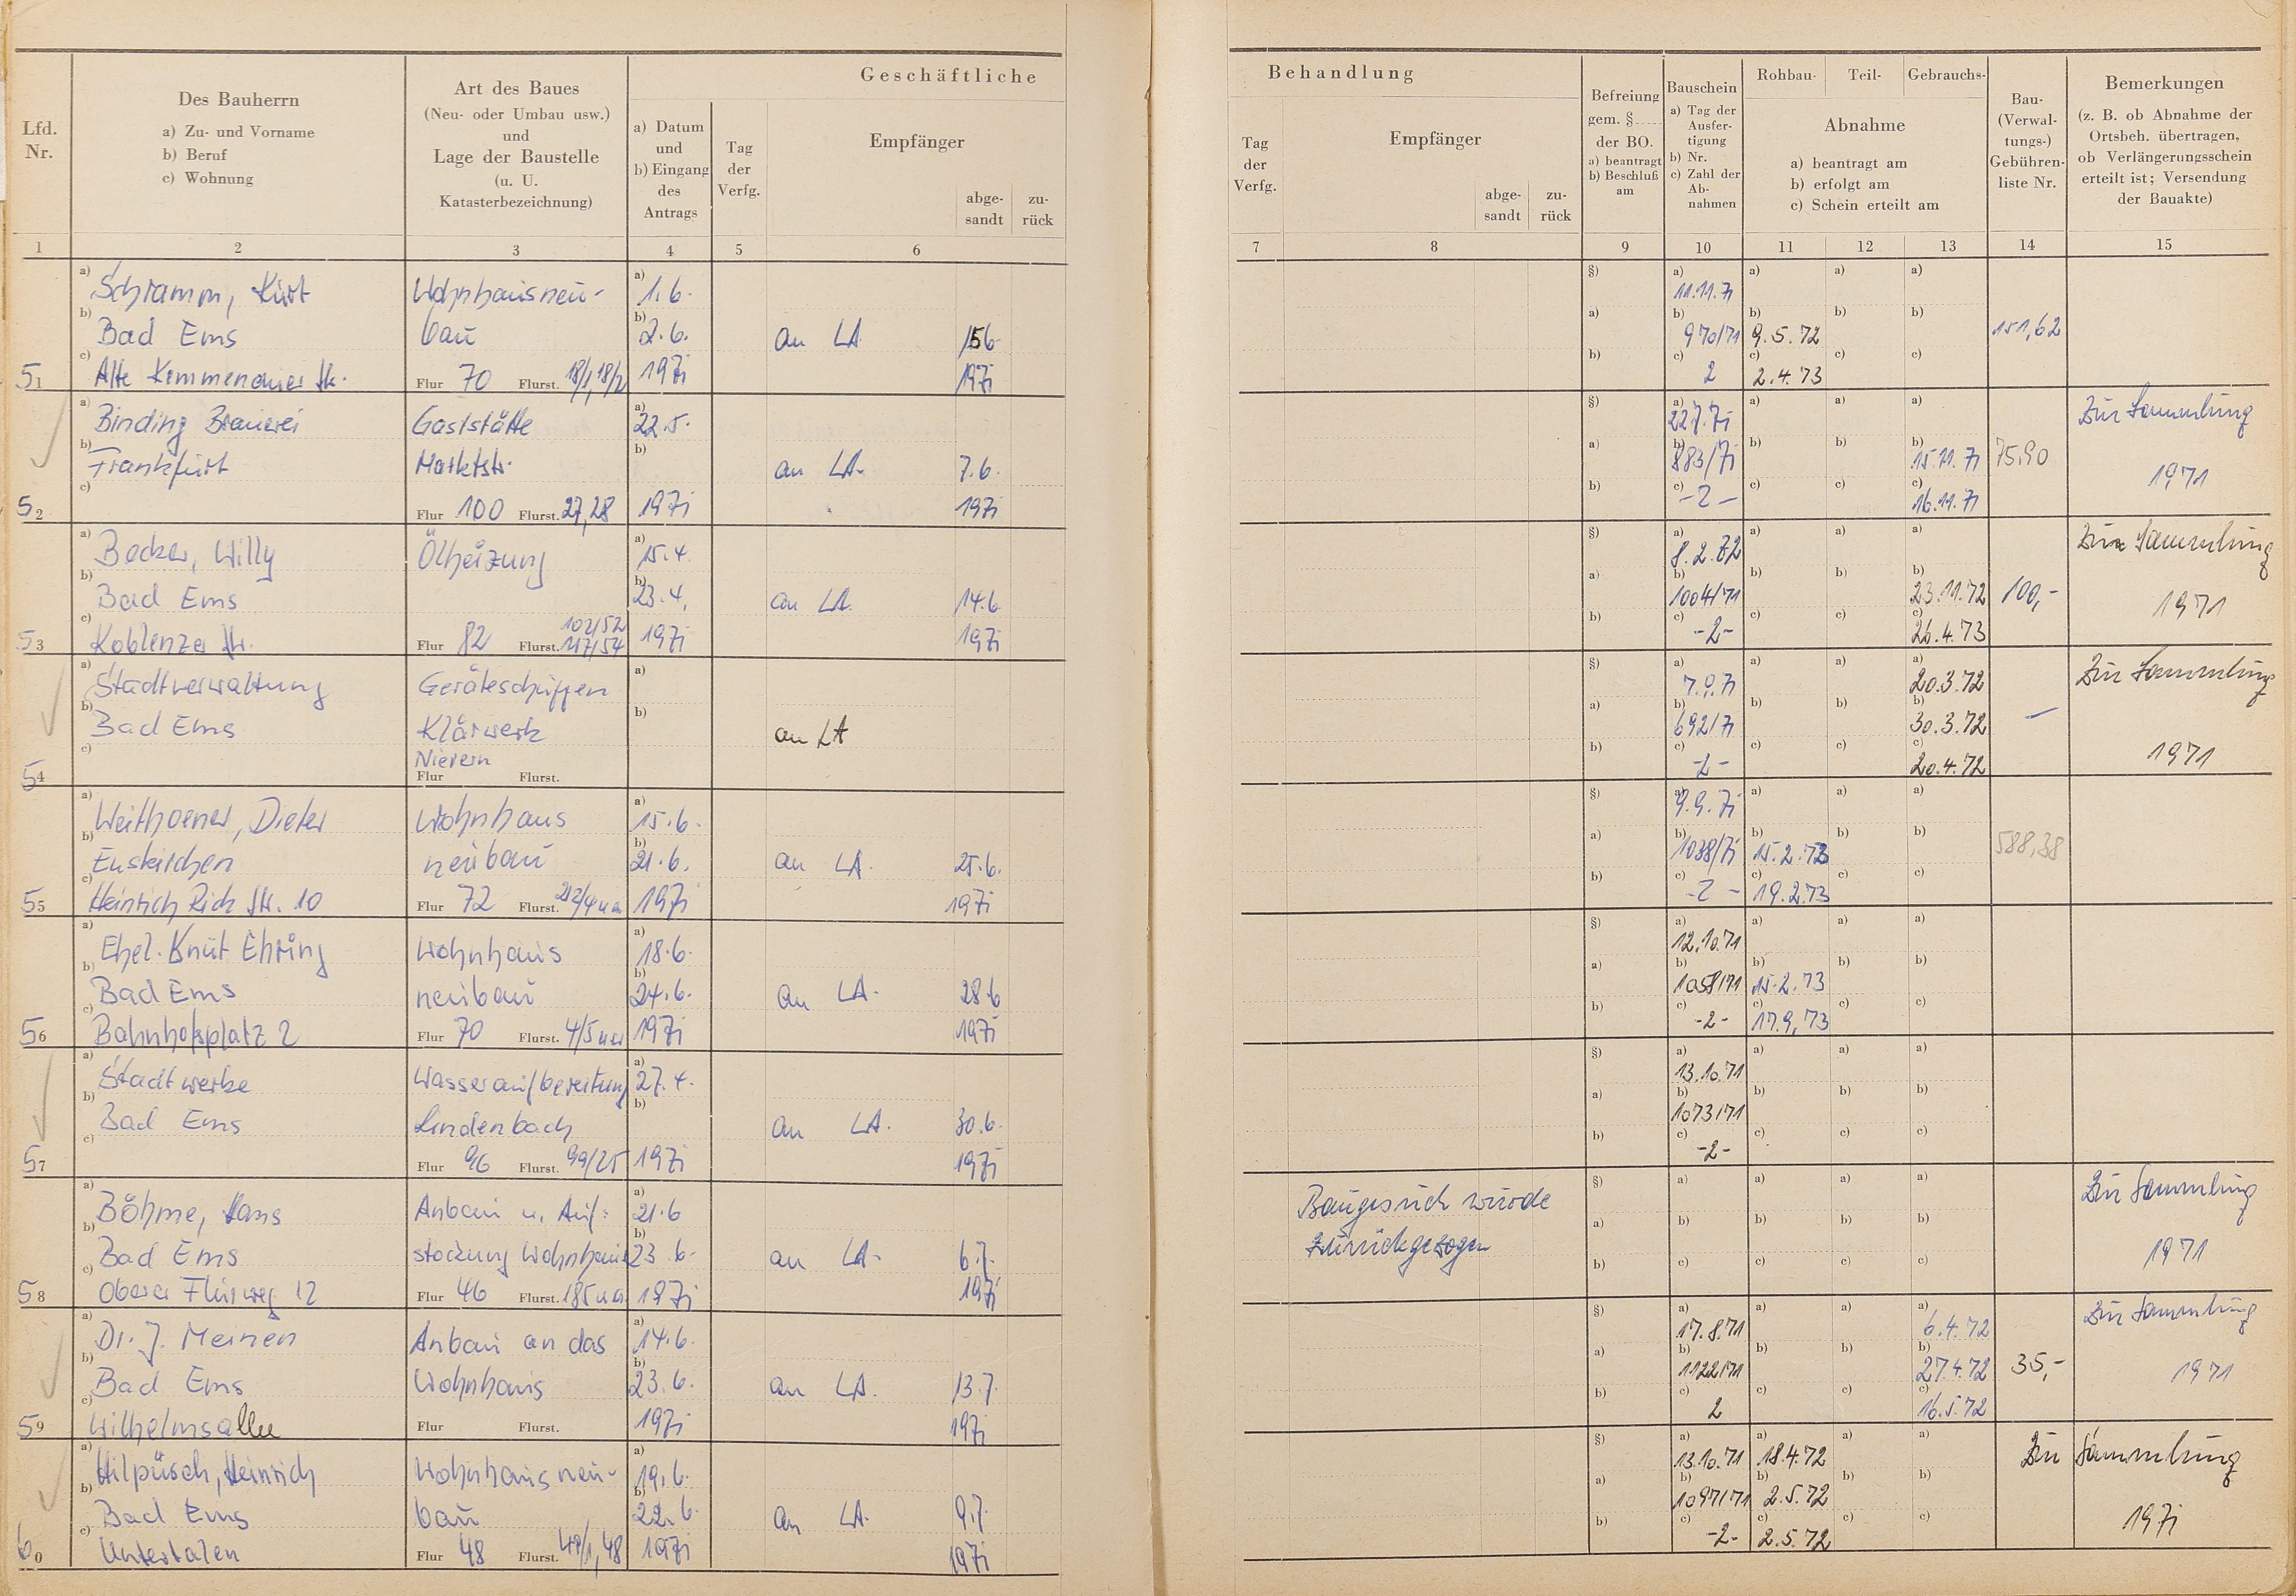 Geschäftliche
Lfd. Nr.
Des Bauherrn
a) Zu- und Vorname
b) Beruf
c) Wohnung
Art des Baues
(Neu- oder Umbau usw.)
und
Lage der Baustelle
(u. U.
Katasterbezeichnung)
a) Datum
und
b) Eingang
des
Antrags
Tag
der
Verfg.
Empfänger
abge-
sandt
zu-
rück
1 2 3 4 5 6
a) Schramm, Kurt Wohnhausneu- a) 1.6.
b) Bad Ems bau b) 2.6. an LA. 15.6.
51 c) Alte Kemmenauer Str. Flur 70 Flurst. 18/1, 18/2 1971 1971
a) Binding Brauerei Gaststätte a) 22.5.
b) Frankfurt Marktstr. b) an LA. 7.6.
52 c) Flur 100 Flurst. 27,28 1971 1971
a) Becker, Willy Ölheizung a) 15.4.
b) Bad Ems b) 23.4. an LA. 14.6.
53 c) Koblenzer Str. Flur 82 Flurst. 102/52 117/54 1971 1971
a) Stadtverwaltung Geräteschuppen a)
b) Bad Ems Klärwerk b) an LA
54 c) Nievern Flur Flurst.
a) Weithoener, Dieter Wohnhaus a) 15.6.
b) Euskirchen neubau b) 21.6. an LA. 25.6.
55 c) Heinrich Rick Str. 10 Flur 72 Flurst. 1971 1971
a) Ehel. Knut Ehring Wohnhaus a) 18.6.
b) Bad Ems neubau b) 24.6. an LA. 28.6
56 c) Bahnhofsplatz 2 Flur 70 Flurst. 4/5 1971 1971
a) Stadtwerke Wasseraufbereitung a) 27.4.
b) Bad Ems Lindenbach b) an LA. 30.6.
57 c) Flur 96 Flurst. 99/25 1971 1971
a) Böhme, Hans Anbau u. Auf- a) 21.6
b) Bad Ems stockung Wohnhaus b) 23.6. an LA. 6.7.
58 c) Oberer Flurweg 12 Flur 46 Flurst. 185 u a 1971 1971
a) Dr. J. Meinen Anbau an das a) 14.6.
b) Bad Ems Wohnhaus b) 23.6. an LA. 13.7.
59 c) Wilhelmsallee Flur Flurst. 1971 1971
a) Hilpüsch, Heinrich Wohnhausneu- a) 19.6.
b) Bad Ems bau b) 22.6. an LA. 9.7.
60 c) Untertalen Flur 48 Flurst. 1971 1971
Behandlung
Tag
der
Verfg.
Empfänger
abge-
sandt
zu-
rück
Befreiung
gem. §
der BO.
a) beantragt
b) Beschluß
am
Bauschein
a) Tag der
Ausfer-
tigung
b) Nr.
c) Zahl der
Ab-
nahmen
Rohbau- Teil- Gebrauchs-
Abnahme
a) beantragt am
b) erfolgt am
c) Schein erteilt am
Bau-
(Verwal-
tungs-)
Gebühren-
liste Nr.
Bemerkungen
(z. B. ob Abnahme der
Ortsbeh. übertragen,
ob Verlängerungsschein
erteilt ist; Versendung
der Bauakte)
7 8 9 10 11 12 13 14 15
§) a) 11.11.71 a) a) a)
a) b) 970/71 b) 9.5.72 b) b) 151,62
b) c) 2 c) 2.4.73 c) c)
§) a) 22.7.71 a) a) a) Zur Sammlung
a) b) 883/71 b) b) b) 15.11.71 75,90
b) c) -2- c) c) c) 16.11.71 1971
§) a) 8.2.72 a) a) a) Zur Sammlung
a) b) 1004/71 b) b) b) 23.11.72 100,-
b) c) -2- c) c) c) 26.4.73 1971
§) a) 7.9.71 a) a) a) 20.3.72 Zur Sammlung
a) b) 692/71 b) b) b) 30.3.72 —
b) c) -2- c) c) c) 20.4.72 1971
§) a) 9.9.71 a) a) a)
a) b) 1038/71 b) 15.2.73 b) b) 588,38
b) c) -2- c) 19.2.73 c) c)
§) a) 12.10.71 a) a) a)
a) b) 1058/71 b) 15.2.73 b) b)
b) c) -2- c) 17.9.73 c) c)
§) a) 13.10.71 a) a) a)
a) b) 1073/71 b) b) b)
b) c) -2- c) c) c)
Baugesuch wurde §) a) a) a) a) Zur Sammlung
zurückgezogen a) b) b) b) b)
b) c) c) c) c) 1971
§) a) 17.8.71 a) a) a) 6.4.72 Zur Sammlung
a) b) 1122/71 b) b) b) 27.4.72 35,-
b) c) 2 c) c) c) 16.5.72 1971
§) a) 13.10.71 a) 18.4.72 a) a) Zur Sammlung
a) b) 1097/71 b) 2.5.72 b) b)
b) c) -2- c) 2.5.72 c) c) 1971